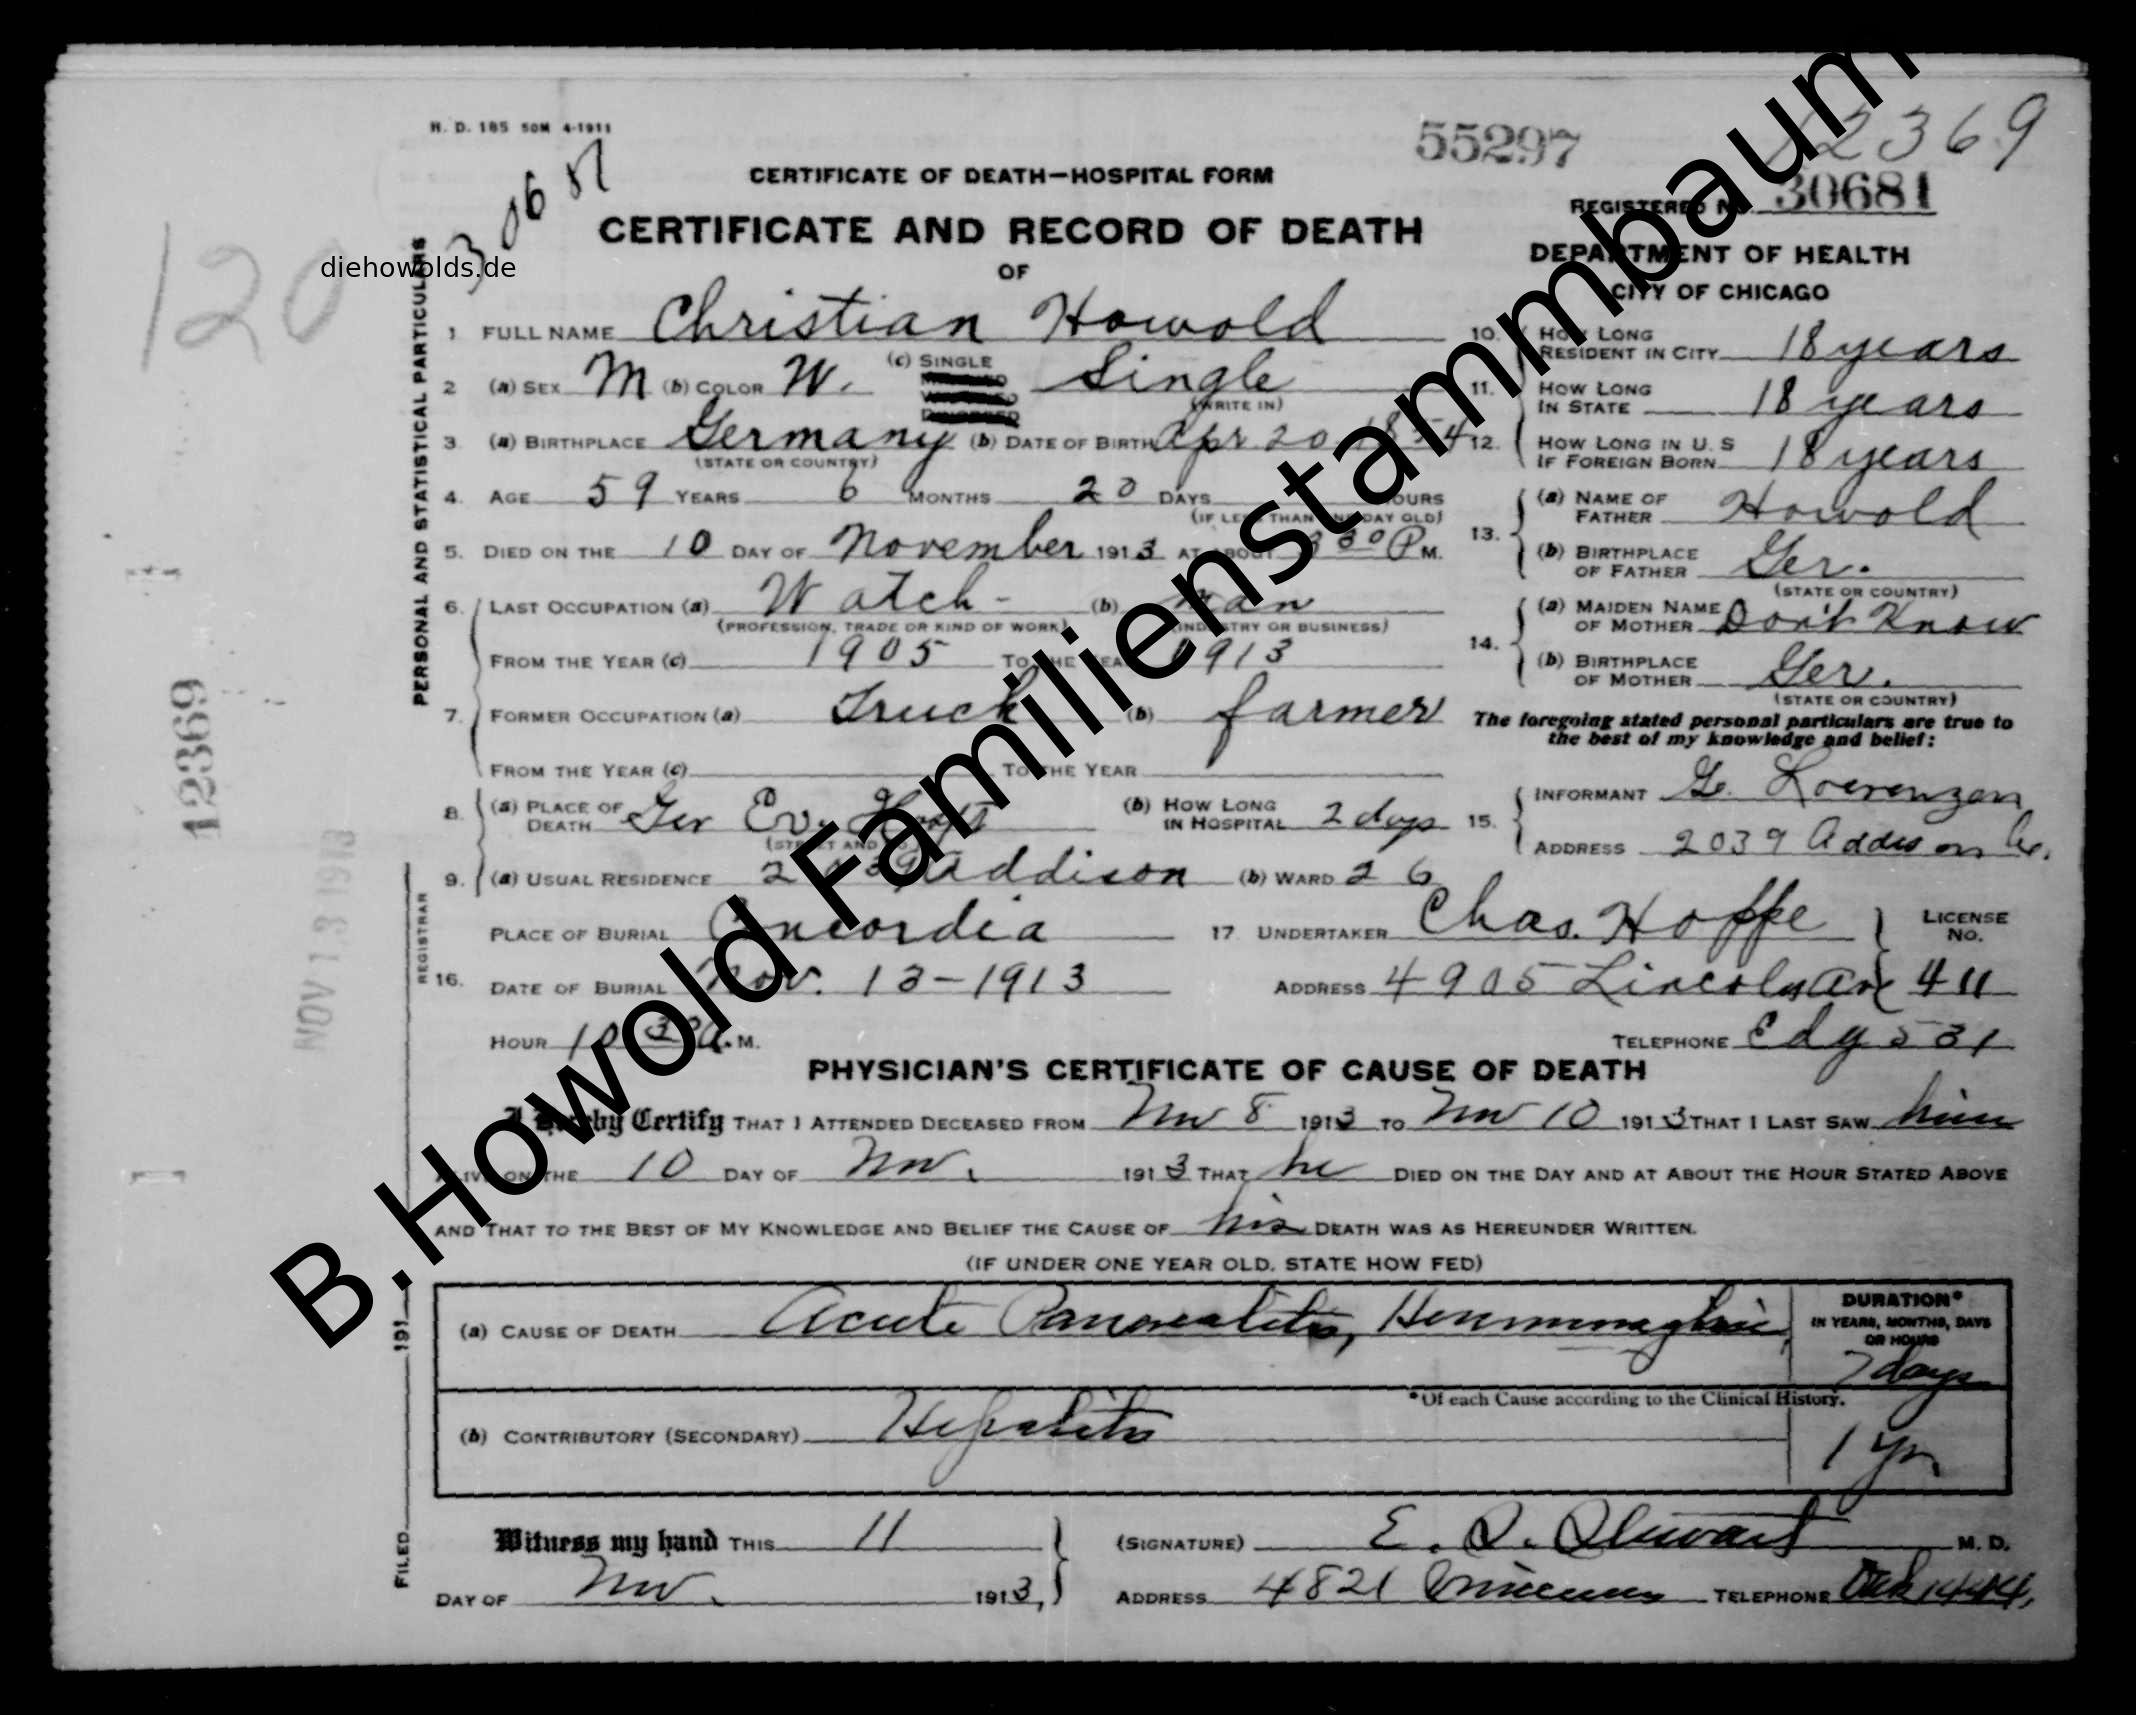 H. D. 185 50M 4-1911
55297
12369
30681
CERTIFICATE OF DEATH—HOSPITAL FORM
REGISTERED NO. 30681
CERTIFICATE AND RECORD OF DEATH
OF
DEPARTMENT OF HEALTH
CITY OF CHICAGO
120
diehowolds.de
PERSONAL AND STATISTICAL PARTICULARS
1. FULL NAME Christian Howold
2 (a) SEX M (b) COLOR W. (c) SINGLE Single
(WRITE IN)
3. (a) BIRTHPLACE Germany (b) DATE OF BIRTH Apr 20 1854
(STATE OR COUNTRY)
4. AGE 59 YEARS 6 MONTHS 20 DAYS HOURS
(IF LESS THAN ONE DAY OLD)
5. DIED ON THE 10 DAY OF November 1913 AT ABOUT 3 30 P M.
6. LAST OCCUPATION (a) Watch- (b) man
(PROFESSION, TRADE OR KIND OF WORK) (INDUSTRY OR BUSINESS)
FROM THE YEAR (c) 1905 TO THE YEAR 1913
7. FORMER OCCUPATION (a) Truck (b) farmer
FROM THE YEAR (c) TO THE YEAR
8. (a) PLACE OF DEATH Ger Ev. Hospt (b) HOW LONG IN HOSPITAL 2 days
(STREET AND NO.)
9. (a) USUAL RESIDENCE 2039 Addison (b) WARD 26
10. HOW LONG RESIDENT IN CITY 18 years
11. HOW LONG IN STATE 18 years
12. HOW LONG IN U. S IF FOREIGN BORN 18 years
13. (a) NAME OF FATHER Howold
(b) BIRTHPLACE OF FATHER Ger.
(STATE OR COUNTRY)
14. (a) MAIDEN NAME OF MOTHER Don't Know
(b) BIRTHPLACE OF MOTHER Ger.
(STATE OR COUNTRY)
The foregoing stated personal particulars are true to
the best of my knowledge and belief:
15. INFORMANT G. Lorenzen
ADDRESS 2039 Addison Av.
REGISTRAR
PLACE OF BURIAL Concordia
16. DATE OF BURIAL Nov. 13-1913
HOUR 10 30 A. M.
17 UNDERTAKER Chas. Hoffe LICENSE NO.
ADDRESS 4905 Lincoln Ave 411
TELEPHONE Edg 531
12369
NOV 13 1913
PHYSICIAN'S CERTIFICATE OF CAUSE OF DEATH
I Hereby Certify THAT I ATTENDED DECEASED FROM Nov 8 1913 TO Nov 10 1913 THAT I LAST SAW him
ALIVE ON THE 10 DAY OF Nov. 1913 THAT he DIED ON THE DAY AND AT ABOUT THE HOUR STATED ABOVE
AND THAT TO THE BEST OF MY KNOWLEDGE AND BELIEF THE CAUSE OF his DEATH WAS AS HEREUNDER WRITTEN.
(IF UNDER ONE YEAR OLD, STATE HOW FED)
(a) CAUSE OF DEATH Acute Pancreatitis, Hemmorrhagic
DURATION*
IN YEARS, MONTHS, DAYS
OR HOURS
7 days
*Of each Cause according to the Clinical History.
(b) CONTRIBUTORY (SECONDARY) Hepatitis
1 yr
FILED 191
Witness my hand THIS 11
DAY OF Nov. 1913,
(SIGNATURE) Stewart M. D.
ADDRESS 4821 TELEPHONE
B.Howold Familienstammbaum